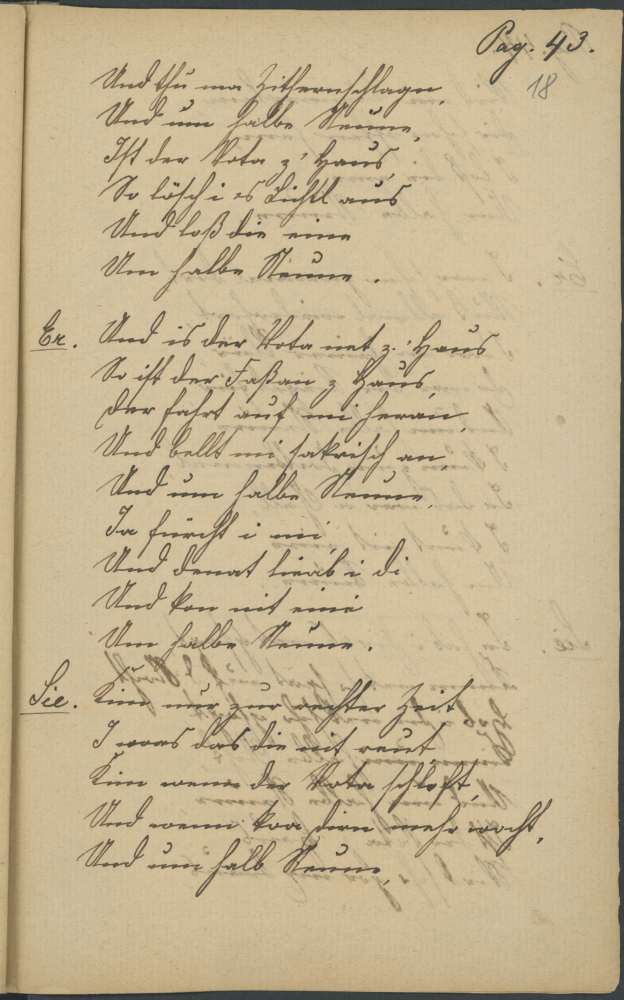 Pag. 43.
18
Und thu ma Zithernschlagn,
Und um halbe Neune,
Ist der Vota z' Haus,
So lösch i 's Liachtl aus
Und laß die eine
Um halbe Neune.
Er. Und is der Vota net z' Haus
So ist der Faßan z Haus,
Der fahrt auf mi heran,
Und bellt mi sakrisch an,
Und um halbe Neune,
Da fürcht i mi
Und denat liab i di
Und kon nit eini
Um halbe Neune.
Sie. Kim nur zur rechter Zeit
I woas das die nit reut,
Kim wenn der Vota schloft,
Und wenn koa Dirn mehr wacht,
Und um halb Neune,